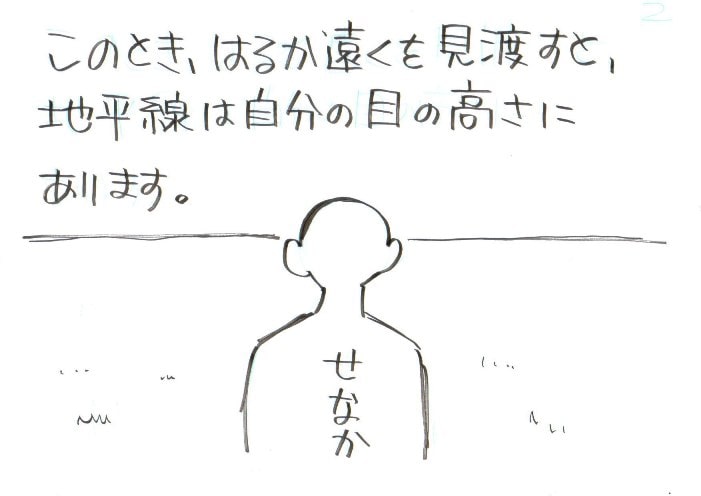 2
このとき、はるか遠くを見渡すと、
地平線は自分の目の高さに
あります。
せなか